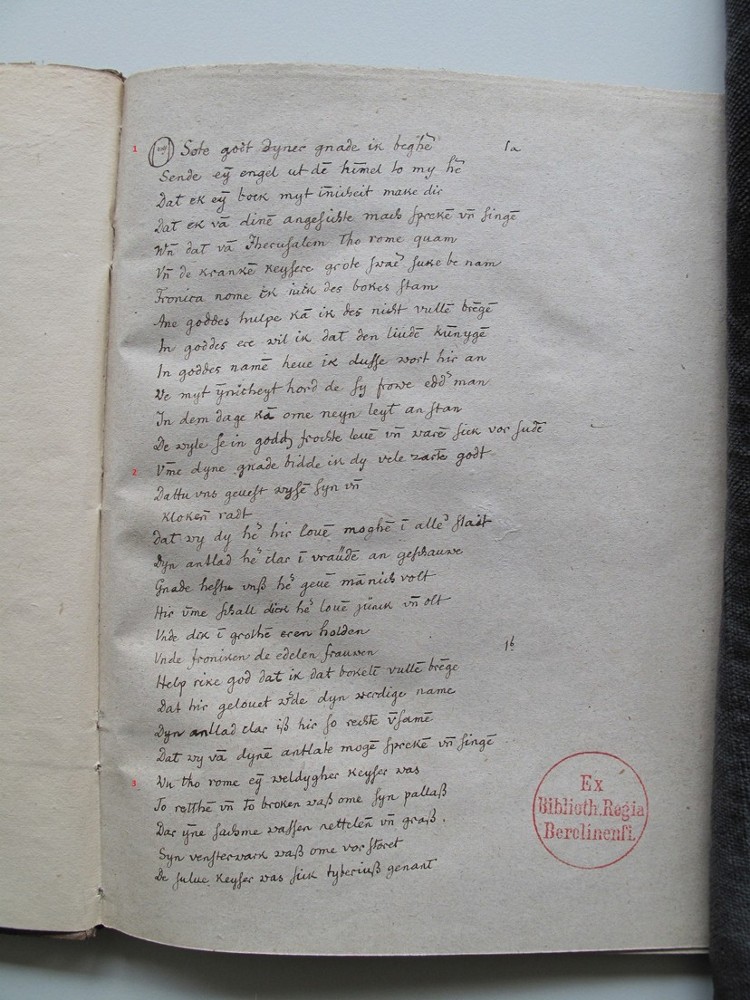 1 Sote godt dyner gnade ik beghē 1a
Sende eÿ engel ut dē hīmel to my hē
Dat ek eÿ boek myt īnicheit make dir
Dat ek vā dinē angesichte mach sprekē vn̄ singē
Wn̄ dat vā Jherusalem tho rome quam
Vn̄ de krankē keysere grote swaē suke be nam
Fronica nome ek juck des bokes stam
Ane goddes hulpe kā ik des nicht vullē brēgē
In goddes ere wil ik dat den liudē kūnygē
In goddes namē heue ik dusse wort hir an
We myt ÿnicheyt hord de sy frowe edd' man
In dem dage kā ome neyn leyt an stan
De wyle se in godds frochte leuē vn̄ warē sick vor sudē
2 Vm̄e dyne gnade bidde ik dy vele zarte godt
Dattu vns geuest wysē syn vn̄
kloken̄ radt
Dat wy dy hē hir louē moghē ī alle' stadt
Dyn antlad hē clar ī vraūdē an geschauwe
Gnade hestu vnß hē geuē mānich volt
Hir ūme schall dick hē louē jūnck vn̄ olt
Vnde dik ī grothē eren holden
Vnde froniken de edelen frauwen 1b
Help rike god dat ik dat bokelē vullē brēge
Dat hir gelouet w'de dyn werdige name
Dyn antlad clar iß hir so rechte v̄samē
Dat wy vā dynē antlate mogē sprekē vn̄ singē
3 Wn̄ tho rome eÿ weldygher keyser was
To rotthē vn̄ to broken waß ome syn pallaß
Dar ÿne sachme wassen nettelēn vn̄ graß.
Syn vensterwark waß ome vorstoret
De sulue keyser was sick tyberiuß genant
Ex
Biblioth. Regia
Berolinensi.